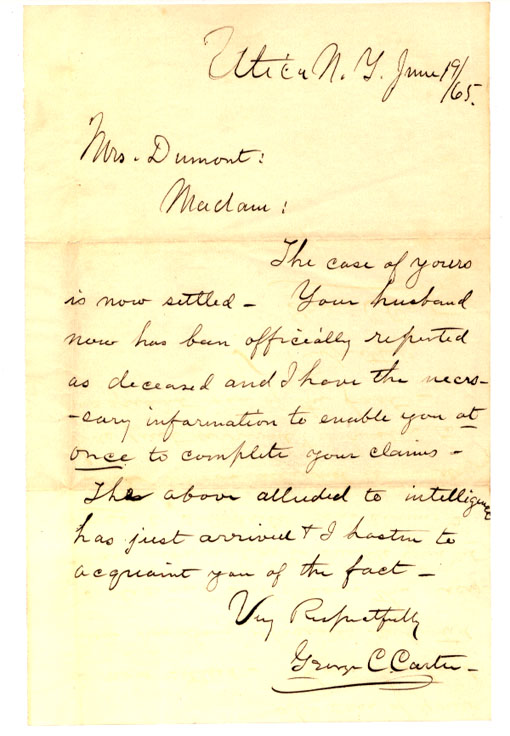 Utica N. Y. June 19/65.
Mrs. Dumont:
Madam:
The case of yours
is now settled - Your husband
now has been officially reported
as deceased and I have the neces-
-sary information to enable you at
once to complete your claims -
The above alluded to intelligence
has just arrived & I hasten to
acquaint you of the fact -
Very Respectfully
George C. Carter -